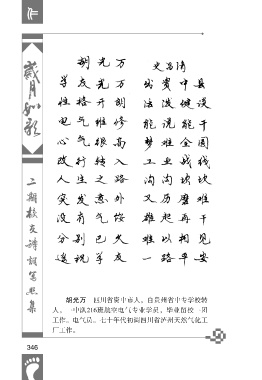 岁月如歌
二期校友诗词写照集
胡光万
学友光万 出资中县
性格开朗 活泼健谈
电气维修 能说能干
心气很高 梦难全圆
改行转入 工业战线
人生之路 沟沟坎坎
突发意外 又历磨难
没有气馁 雄起再干
分别已久 难以相见
遥祝学友 一路平安
胡光万 四川省资中市人，自贵州省中专学校转
入，一中队216班航空电气专业学员，毕业留校一团
工作。电气员。七十年代初调四川省泸州天然气化工
厂工作。
346